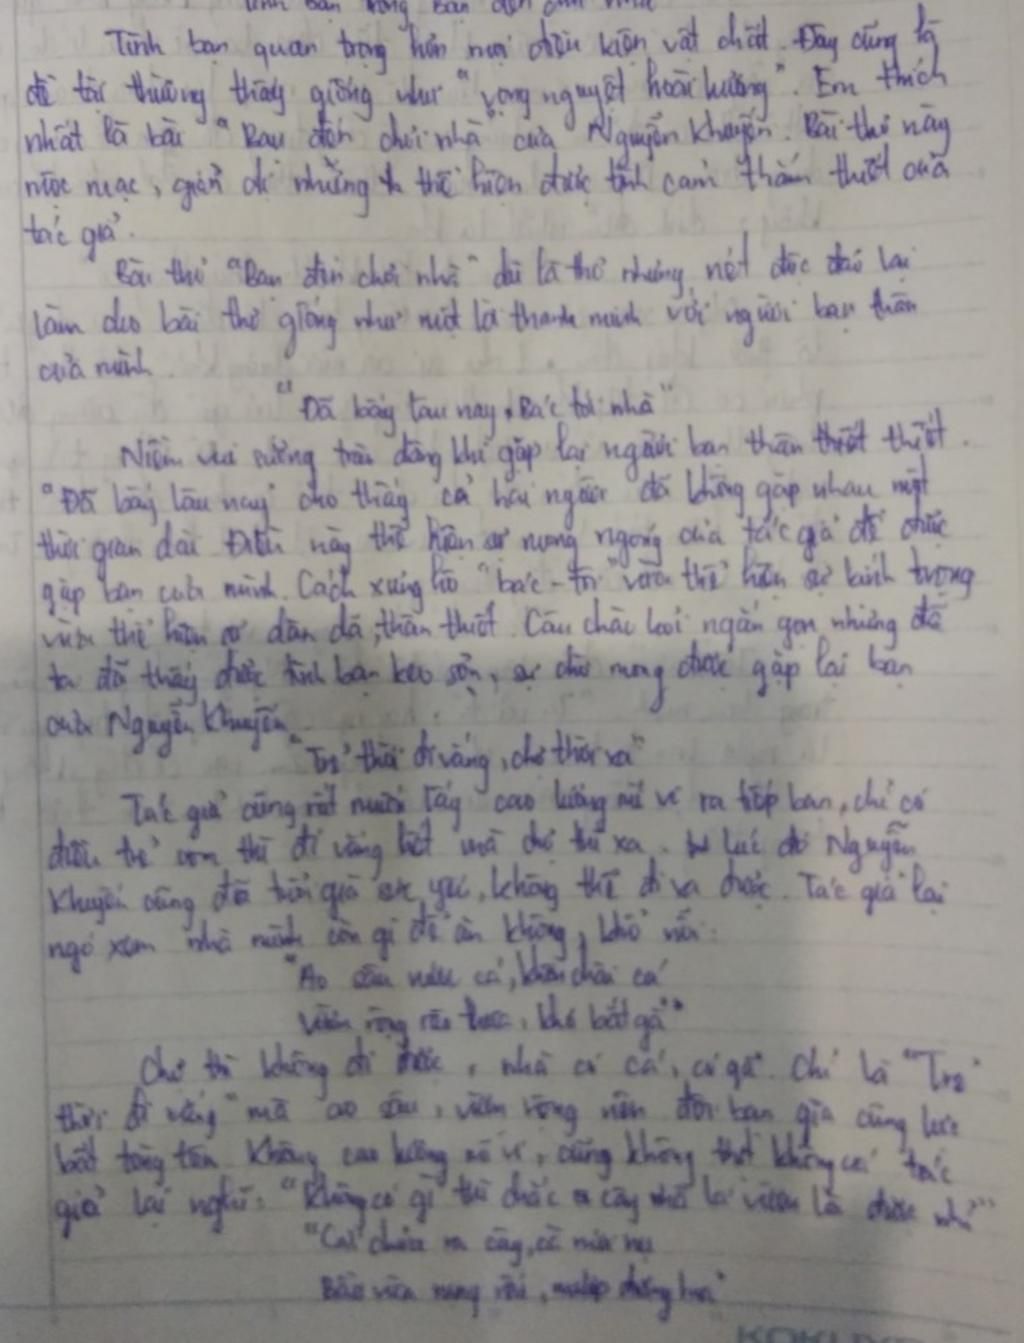 Tình bạn quan trọng hơn mọi điều kiện vật chất. Đây cũng là
đề tài thường thấy giống như "vọng nguyệt hoài hương". Em thích
nhất là bài "Bạn đến chơi nhà của Nguyễn Khuyến. Bài thơ này
mộc mạc, giản dị nhưng thể hiện được tình cảm thắm thiết của
tác giả.
Bài thơ "Bạn đến chơi nhà" dù là thơ nhưng nét độc đáo lại
làm cho bài thơ giống như một lời thanh minh với người bạn thân
của mình.
"Đã bấy lâu nay, Bác tới nhà"
Niềm vui sướng trào dâng khi gặp lại người bạn thân thiết
"Đã bấy lâu nay" cho thấy cả hai người đã không gặp nhau một
thời gian dài Điều này thể hiện sự mong ngóng của tác giả để được
gặp bạn của mình. Cách xưng hô "bác - tôi" vừa thể hiện sự kính trọng
vừa thể hiện sự dân dã, thân thiết. Câu chào hỏi ngắn gọn nhưng để
ta đã thấy được tình bạn keo sơn, sự chờ mong được gặp lại bạn
của Nguyễn Khuyến.
"Trẻ thời đi vắng, chợ thời xa"
Tác giả cũng rất muốn lấy cao lương mĩ vị ra tiếp bạn, chỉ có
điều trẻ con thì đi vắng hết mà chợ thì xa. lúc đó Nguyễn
Khuyến cũng đã tuổi già sức yếu, không thể đi xa được. Tác giả lại
ngó xem nhà mình còn gì để ăn không, khổ nỗi:
"Ao sâu nước cả, khôn chài cá
Vườn rộng rào thưa, khó bắt gà"
Chợ thì không đi được, nhà có cá, có gà. Chỉ là "Trẻ
thời đi vắng" mà ao sâu, vườn rộng nên đôi bạn già cũng lực
bất tòng tâm Không cao lương mĩ vị, cũng không thịt không cá tác
giả lại nghĩ: "Không có gì thì chắc cây nhà lá vườn là được nhỉ"
"Cải chửa ra cây, cà mới nụ
Bầu vừa rụng rốn, mướp đương hoa"